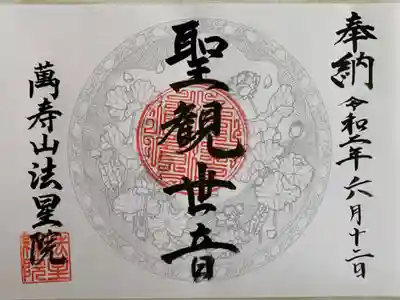 奉納
令和二年六月十二日
聖観世音
萬寿山法星院